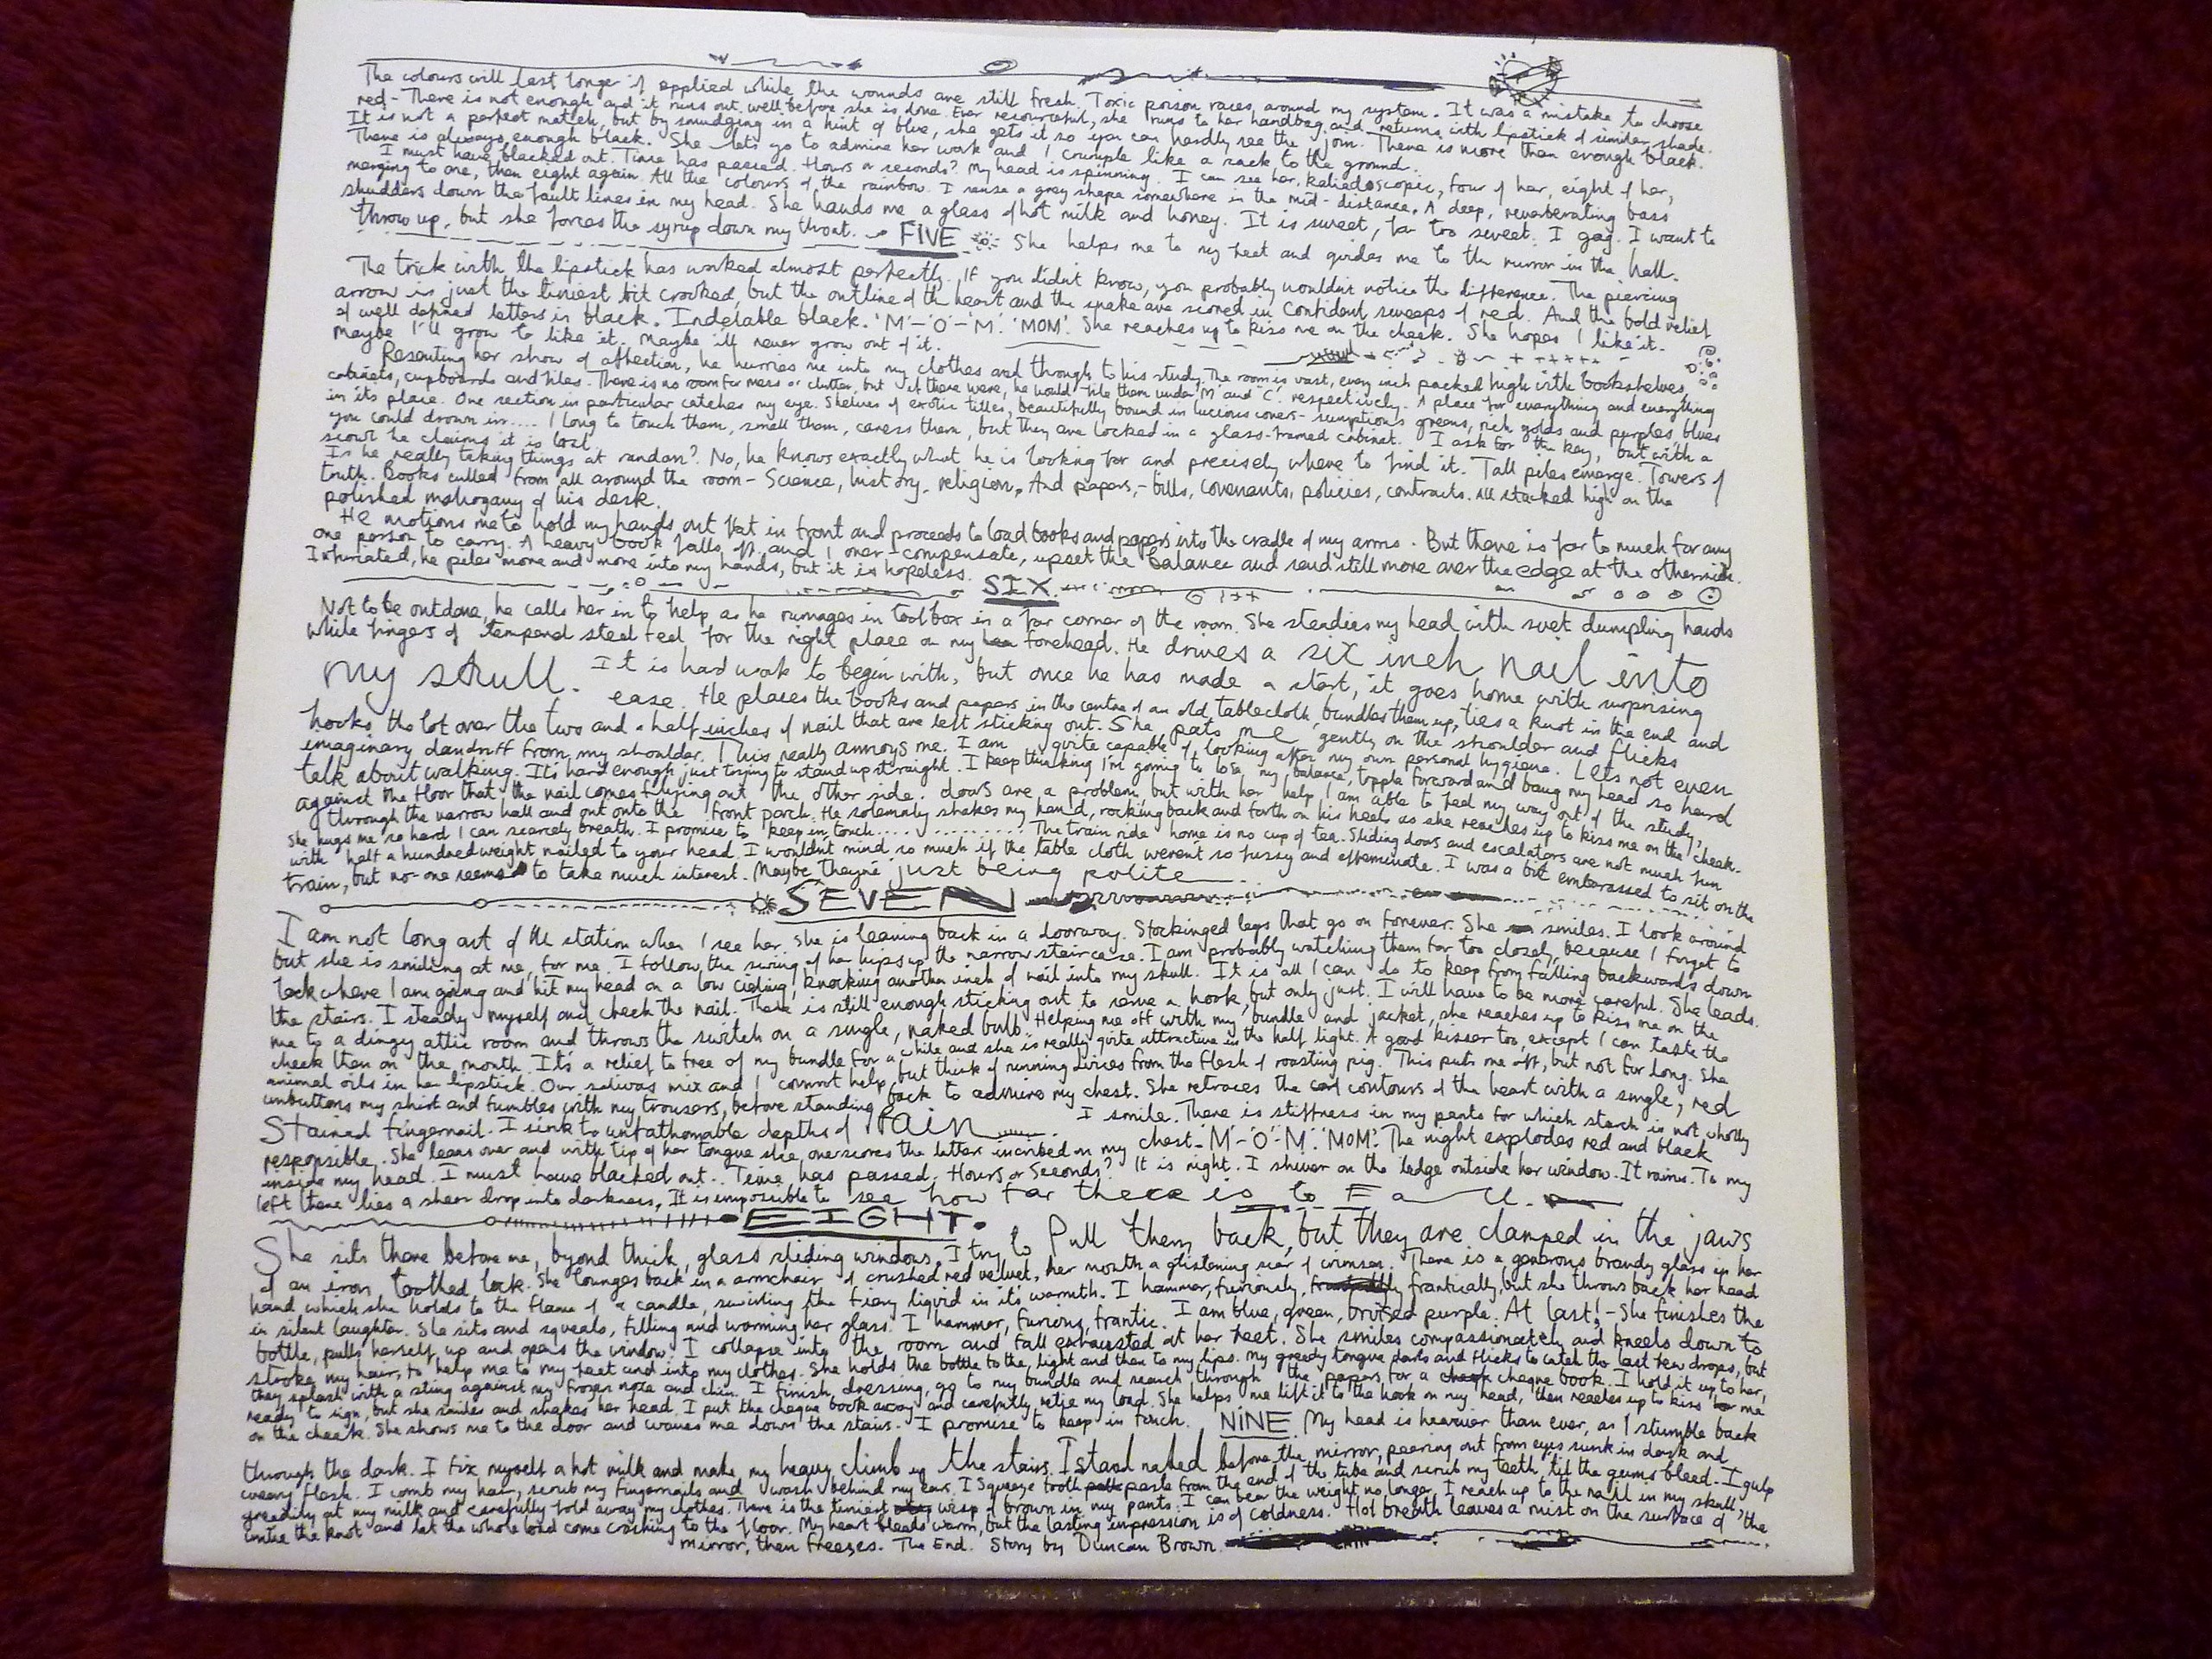 The colours will last longer if applied while the wounds are still fresh. Toxic poison races around my system. It was a mistake to choose
red - There is not enough and it runs out well before she is done. Ever resourceful, she runs to her handbag and returns with lipstick of similar shade.
It is not a perfect match, but by smudging in a hint of blue, she gets it so you can hardly see the join. There is more than enough black.
There is always enough black. She lets go to admire her work and I crumple like a sack to the ground.
I must have blacked out. Time has passed. Hours or seconds? My head is spinning. I can see her, kaliedoscopic, four of her, eight of her,
merging to one, then eight again. All the colours of the rainbow. I sense a grey shape somewhere in the mid-distance. A deep, reverberating bass
shudders down the fault lines in my head. She hands me a glass of hot milk and honey. It is sweet, far too sweet. I gag. I want to
throw up, but she forces the syrup down my throat. FIVE She helps me to my feet and guides me to the mirror in the hall.
The trick with the lipstick has worked almost perfectly. If you didn't know, you probably wouldn't notice the difference. The piercing
arrow is just the tiniest bit crooked, but the outline of the heart and the snake are scored in confident sweeps of red. And the bold relief
of well defined letters in black. Indelable black. 'M'-'O'-'M'. 'MOM'. She reaches up to kiss me on the cheek. She hopes I like it.
Maybe I'll grow to like it. Maybe i'll never grow out of it.
Resenting her show of affection, he hurries me into my clothes and through to his study. The room is vast, every inch packed high with bookshelves,
cabinets, cupboards and files. There is no room for mess or clutter, but if there were, he would file them under 'M' and 'C' respectively. A place for everything and everything
in its place. One section in particular catches my eye. Shelves of exotic titles, beautifully bound in luscious covers - sumptious greens, rich golds and purples, blues
you could drown in.... I long to touch them, smell them, caress them, but they are locked in a glass-framed cabinet. I ask for the key, but with a
scowl he claims it is lost.
Is he really taking things at random? No, he knows exactly what he is looking for and precisely where to find it. Tall piles emerge. Towers of
truth. Books culled from all around the room - Science, history, religion. And papers, - bills, covenants, policies, contracts. All stacked high on the
polished mahogany of his desk.
He motions me to hold my hands out flat in front and proceeds to load books and papers into the cradle of my arms. But there is far to much for any
one person to carry. A heavy book falls off and I over-compensate, upset the balance and send still more over the edge at the other side.
Infuriated, he piles more and more into my hands, but it is hopeless. SIX
Not to be outdone, he calls her in to help as he rumages in toolbox in a far corner of the room. She steadies my head with suet dumpling hands
while fingers of tempered steel feel for the right place on my forehead. He drives a six inch nail into
my skull. It is hard work to begin with, but once he has made a start, it goes home with surprising
ease. He places the books and papers in the centre of an old tablecloth, bundles them up, ties a knot in the end and
hooks the lot over the two and a half inches of nail that are left sticking out. She pats me gently on the shoulder and flicks
imaginary dandruff from my shoulder. This really annoys me. I am quite capable of looking after my own personal hygiene. Lets not even
talk about walking. It's hard enough just trying to stand up straight. I keep thinking I'm going to lose my balance, topple forward and bang my head so hard
against the floor that the nail comes flying out the other side. doors are a problem, but with her help I am able to feel my way out of the study,
through the narrow hall and out onto the front porch. He solemnly shakes my hand, rocking back and forth on his heels as she reaches up to kiss me on the cheek.
She hugs me so hard I can scarcely breath. I promise to keep in touch............... The train ride home is no cup of tea. Sliding doors and escalators are not much fun
with half a hundredweight nailed to your head. I wouldn't mind so much if the table cloth weren't so fussy and effeminate. I was a bit embarassed to sit on the
train, but no-one seems to take much interest. Maybe they're just being polite
SEVEN
I am not long out of the station when I see her. She is leaning back in a doorway. Stockinged legs that go on forever. She smiles. I look around
but she is smiling at me, for me. I follow the swing of her hips up the narrow staircase. I am probably watching them far too closely, because I forget to
look where I am going and hit my head on a low cieling, knocking another inch of nail into my skull. It is all I can do to keep from falling backwards down
the stairs. I steady myself and check the nail. There is still enough sticking out to serve a hook, but only just. I will have to be more careful. She leads
me to a dingy attic room and throws the switch on a single, naked bulb. Helping me off with my bundle and jacket, she reaches up to kiss me on the
cheek then on the mouth. It's a relief to free of my bundle for a while and she is really quite attractive in the half light. A good kisser too, except I can taste the
animal oils in her lipstick. Our salivas mix and I cannot help but think of running juices from the flesh of roasting pig. This puts me off, but not for long. She
unbuttons my shirt and fumbles with my trousers, before standing back to admire my chest. She retraces the contours of the heart with a single, red
stained fingernail. I sink to unfathomable depths of Pain...... I smile. There is stiffness in my pants for which starch is not wholly
responsible. She leans over and with tip of her tongue she overscores the letters incribed on my chest. 'M'-'O'-'M'. 'MOM'. The night explodes red and black
inside my head. I must have blacked out.. Time has passed. Hours or Seconds? It is night. I shiver on the ledge outside her window. It rains. To my
left there lies a sheer drop into darkness, It is impossible to see how far there is to Fall.
EIGHT.
She sits there before me, byond thick, glass sliding windows. I try to Pull them back, but they are clamped in the jaws
of an iron toothed lock. She lounges back in a armchair of crushed red velvet, her mouth a glistening scar of crimson. There is a generous brandy glass in her
hand which she holds to the flame of a candle, swirling the fiery liquid in it's warmth. I hammer, furiously, frantically, but she throws back her head
in silent laughter. She sits and squeals, filling and warming her glass. I hammer, furious, frantic. I am blue, green, bruised purple. At last! - She finishes the
bottle, pulls herself up and opens the window. I collapse into the room and fall exhausted at her feet. She smiles compassionately and kneels down to
stroke my hair, to help me to my feet and into my clothes. She holds the bottle to the light and then to my lips. My greedy tongue darts and flicks to catch the last few drops, but
they splash with a sting against my frozen nose and chin. I finish dressing, go to my bundle and search through the papers for a cheque book. I hold it up to her,
ready to sign, but she smiles and shakes her head. I put the cheque book away and carefully retie my load. She helps me lift it to the hook on my head, then reaches up to kiss me
on the cheek. She shows me to the door and waves me down the stairs. I promise to keep in touch. NINE My head is heavier than ever, as I stumble back
through the dark. I fix myself a hot milk and make my heavy climb up the stairs. I stand naked before the mirror, peering out from eyes sunk in dark and
weary flesh. I comb my hair, scrub my fingernails and wash behind my ears. I Squeeze tooth paste from the end of the tube and scrub my teeth 'til the gums bleed. I gulp
greedily at my milk and carefully fold away my clothes. There is the tiniest wisp of brown in my pants. I can bear the weight no longer. I reach up to the nail in my skull,
untie the knot and let the whole load come crashing to the floor. My heart bleeds warm, but the lasting impression is of coldness. Hot breath leaves a mist on the surface of the
mirror, then freezes. The End. Story by Duncan Brown.